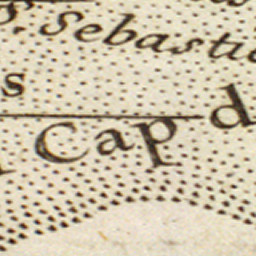 S. Sebastia
s
Cap d